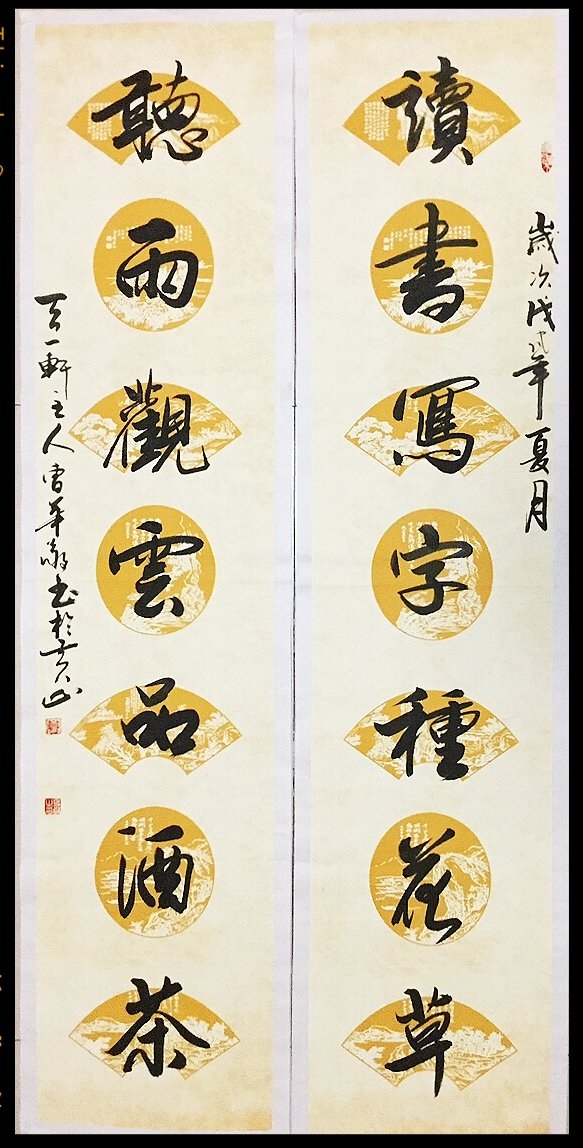 歲次戊戌年夏月
讀書寫字種花草
聽雨觀雲品酒茶
天一軒主人曹華散书於黄山